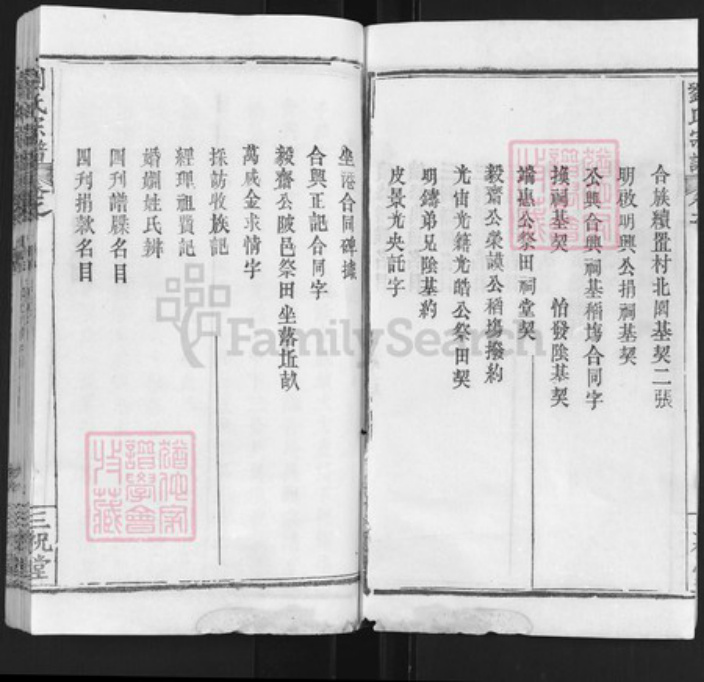 劉氏宗譜
合族續置村北園基契二張
明啟明興公捐祠基契
公興合興祠基稻塲合同字
換祠基契　怡發陰基契
端惠公祭田祠堂契
毅齋公榮謨公稻塲撥約
光宙光籍光皓公祭田契
明鑄弟兄陰基約
皮景光央託字
坐港合同碑據
合興正記合同字
毅齋公陂邑祭田坐落坵畝
萬咸金求情字
採訪收族記
經理祖賢記
婚姻姓氏辨
四刊譜牒名目
四刊捐欵名目
氏宗譜
三祝堂
FamilySearch